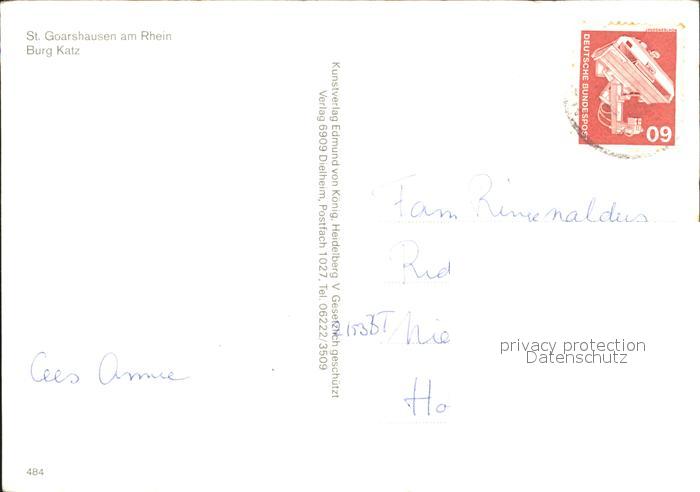 St. Goarshausen am Rhein
Burg Katz
Kunstverlag Edmund von König, Heidelberg V. Gesetzlich geschützt
Verlag 6909 Dielheim, Postfach 1027, Tel. 06222/3509
DEUTSCHE BUNDESPOST
60
Fam
Rid
Nie
Ho
Cees Annie
privacy protection
Datenschutz
484